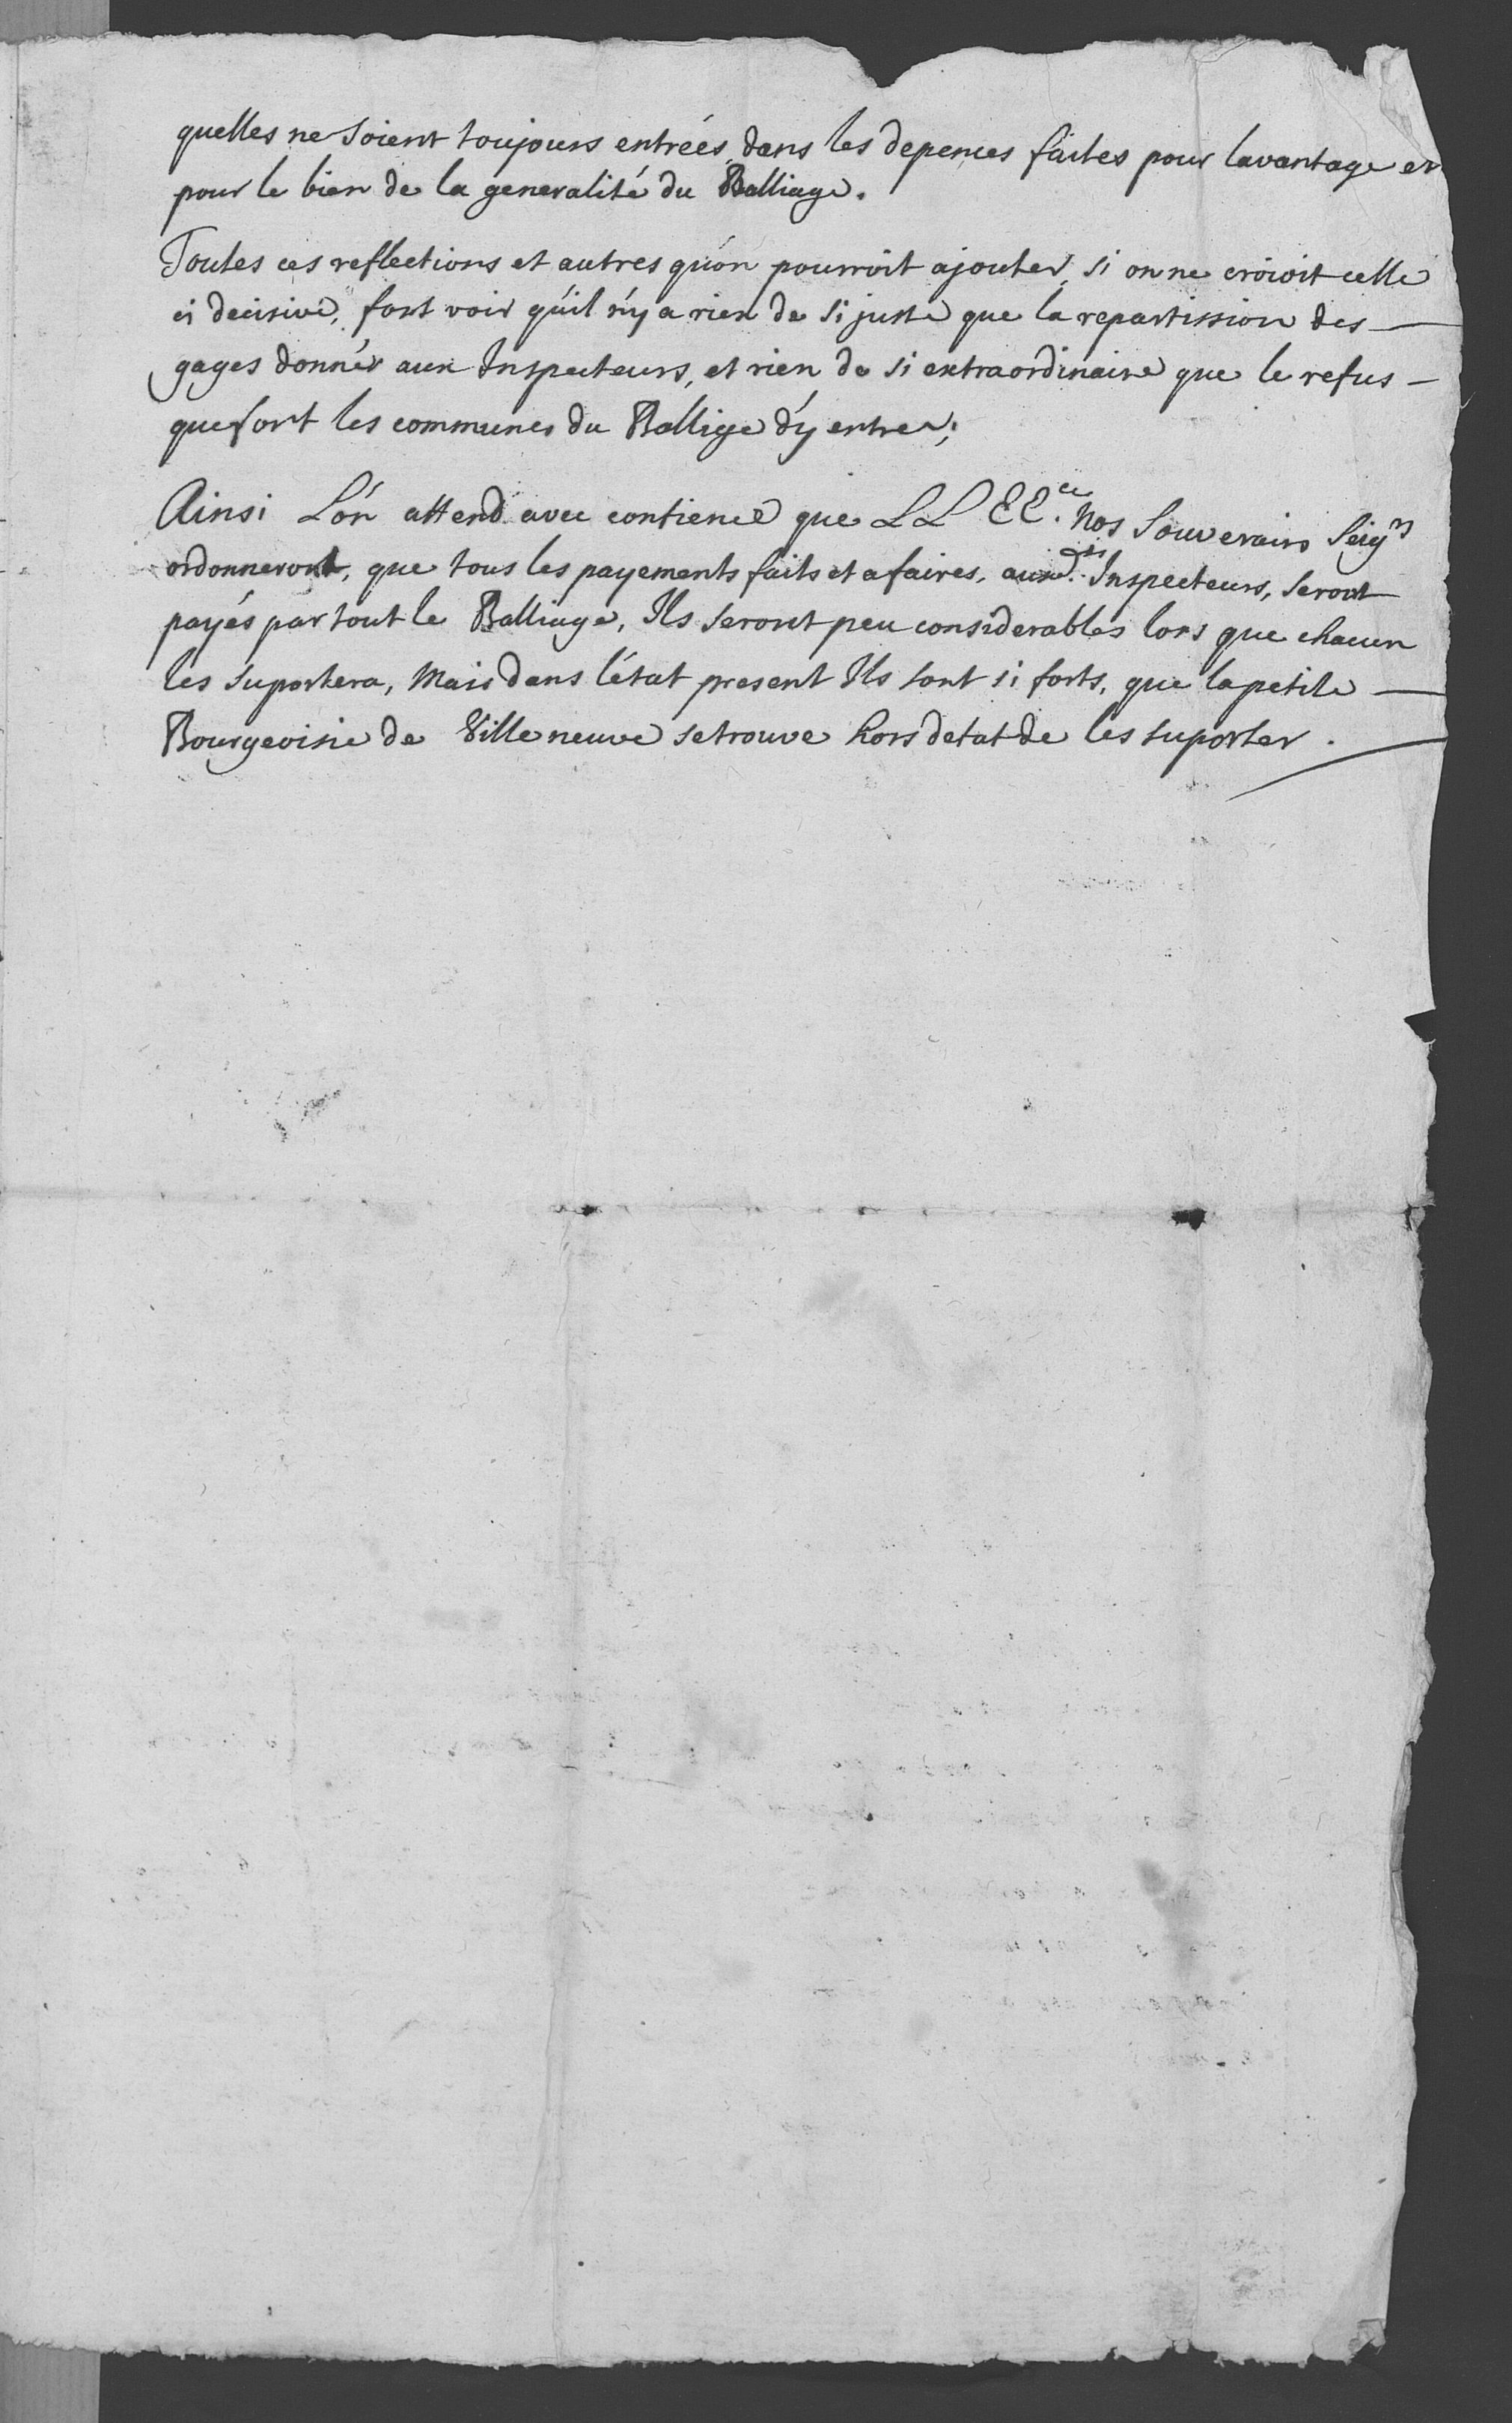 quelles ne soient toujours entrées dans les depences faites pour lavantage et
pour le bien de la generalité du Balliage.
Toutes ces reflections et autres qu'on pourroit ajouter, si on ne croioit celle
ci decisive, font voir qu'il n'y a rien de si juste que la repartission des
gages donnés aux Inspecteurs, et rien de si extraordinaire que le refus
que font les communes du Ballige d'y entrer;
Ainsi L'on attend avec confience que LL EE.ces Nos Souverains Seigrs
ordonneront, que tous les payements faits et a faires, auxdts. Inspecteurs, seront
payés par tout le Balliage, Ils seront peu considerables lors que chacun
les suportera, Mais dans l'état present Ils sont si forts, que la petite
Bourgeoisie de Villeneuve se trouve hors detat de les suporter.